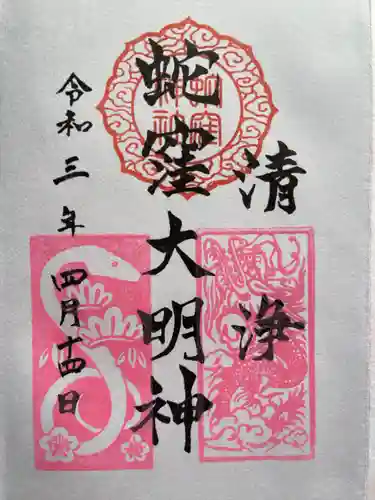 清浄
蛇窪大明神
令和三年四月十四日